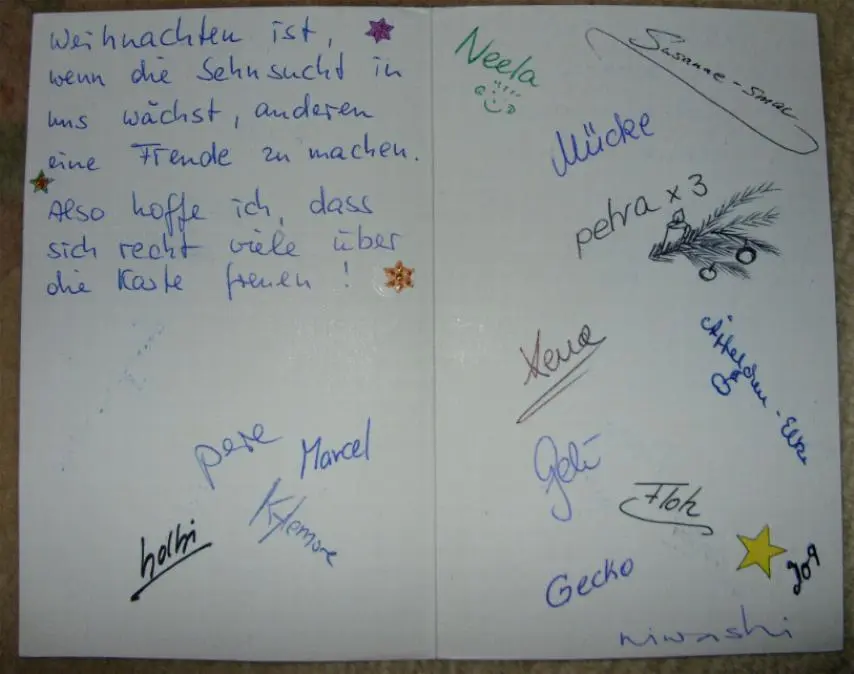 Weihnachten ist,
wenn die Sehnsucht in
uns wächst, anderen
eine Freude zu machen.
Also hoffe ich, dass
sich recht viele über
die Karte freuen !
pese
Marcel
Kylemore
holbi
Neela
Susanne-smac
Mücke
petra x 3
Xena
Äffelchen-Elke
Floh
Gecko
Jog
niwashi